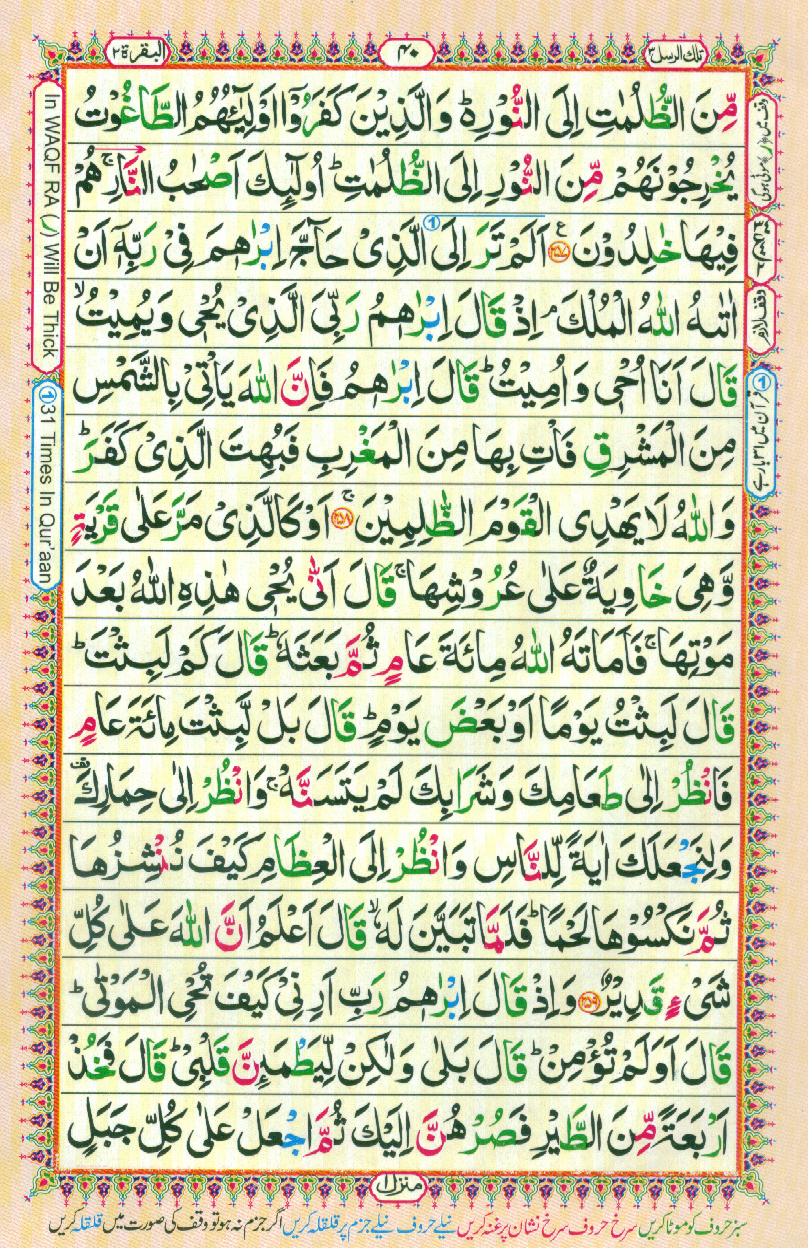 تلك الرسل ٣
٤٠
البقرة ٢
مِّنَ الظُّلُمٰتِ اِلَى النُّوْرِ۬ؕ وَالَّذِيْنَ كَفَرُوْۤا اَوْلِيٰٓـُٔهُمُ الطَّاغُوْتُ
يُخْرِجُوْنَهُمْ مِّنَ النُّوْرِ اِلَى الظُّلُمٰتِؕ اُولٰٓئِكَ اَصْحٰبُ النَّارِۚ هُمْ
فِيْهَا خٰلِدُوْنَ ﴿٢٥٧﴾ اَلَمْ تَرَ اِلَى الَّذِىْ حَآجَّ اِبْرٰهٖمَ فِىْ رَبِّهٖۤ اَنْ
اٰتٰىهُ اللّٰهُ الْمُلْكَۘ اِذْ قَالَ اِبْرٰهٖمُ رَبِّىَ الَّذِىْ يُحْىٖ وَيُمِيْتُۙ
قَالَ اَنَا اُحْىٖ وَاُمِيْتُؕ قَالَ اِبْرٰهٖمُ فَاِنَّ اللّٰهَ يَاْتِىْ بِالشَّمْسِ
مِنَ الْمَشْرِقِ فَاْتِ بِهَا مِنَ الْمَغْرِبِ فَبُهِتَ الَّذِىْ كَفَرَؕ
وَاللّٰهُ لَا يَهْدِى الْقَوْمَ الظّٰلِمِيْنَۚ ﴿٢٥٨﴾ اَوْ كَالَّذِىْ مَرَّ عَلٰى قَرْيَةٍ
وَّهِىَ خَاوِيَةٌ عَلٰى عُرُوْشِهَاۚ قَالَ اَنّٰى يُحْىٖ هٰذِهِ اللّٰهُ بَعْدَ
مَوْتِهَاۚ فَاَمَاتَهُ اللّٰهُ مِائَةَ عَامٍ ثُمَّ بَعَثَهٗؕ قَالَ كَمْ لَبِثْتَؕ
قَالَ لَبِثْتُ يَوْمًا اَوْ بَعْضَ يَوْمٍؕ قَالَ بَلْ لَّبِثْتَ مِائَةَ عَامٍ
فَانْظُرْ اِلٰى طَعَامِكَ وَشَرَابِكَ لَمْ يَتَسَنَّهْۚ وَانْظُرْ اِلٰى حِمَارِكَ
وَلِنَجْعَلَكَ اٰيَةً لِّلنَّاسِ وَانْظُرْ اِلَى الْعِظَامِ كَيْفَ نُنْشِزُهَا
ثُمَّ نَكْسُوْهَا لَحْمًاؕ فَلَمَّا تَبَيَّنَ لَهٗۙ قَالَ اَعْلَمُ اَنَّ اللّٰهَ عَلٰى كُلِّ
شَىْءٍ قَدِيْرٌ ﴿٢٥٩﴾ وَاِذْ قَالَ اِبْرٰهٖمُ رَبِّ اَرِنِىْ كَيْفَ تُحْىِ الْمَوْتٰىؕ
قَالَ اَوَلَمْ تُؤْمِنْؕ قَالَ بَلٰى وَلٰكِنْ لِّيَطْمَئِنَّ قَلْبِىْؕ قَالَ فَخُذْ
اَرْبَعَةً مِّنَ الطَّيْرِ فَصُرْهُنَّ اِلَيْكَ ثُمَّ اجْعَلْ عَلٰى كُلِّ جَبَلٍ
وقف لازم
In WAQF RA (ر) Will Be Thick
① 31 Times In Qur'aan
منزل ١
سبز حروف کو موٹا کریں سرخ حروف سرخ نشان پر غنہ کریں نیلے حروف نیلے جزم پر قلقلہ کریں اگر جزم نہ ہو تو وقف کی صورت میں قلقلہ کریں